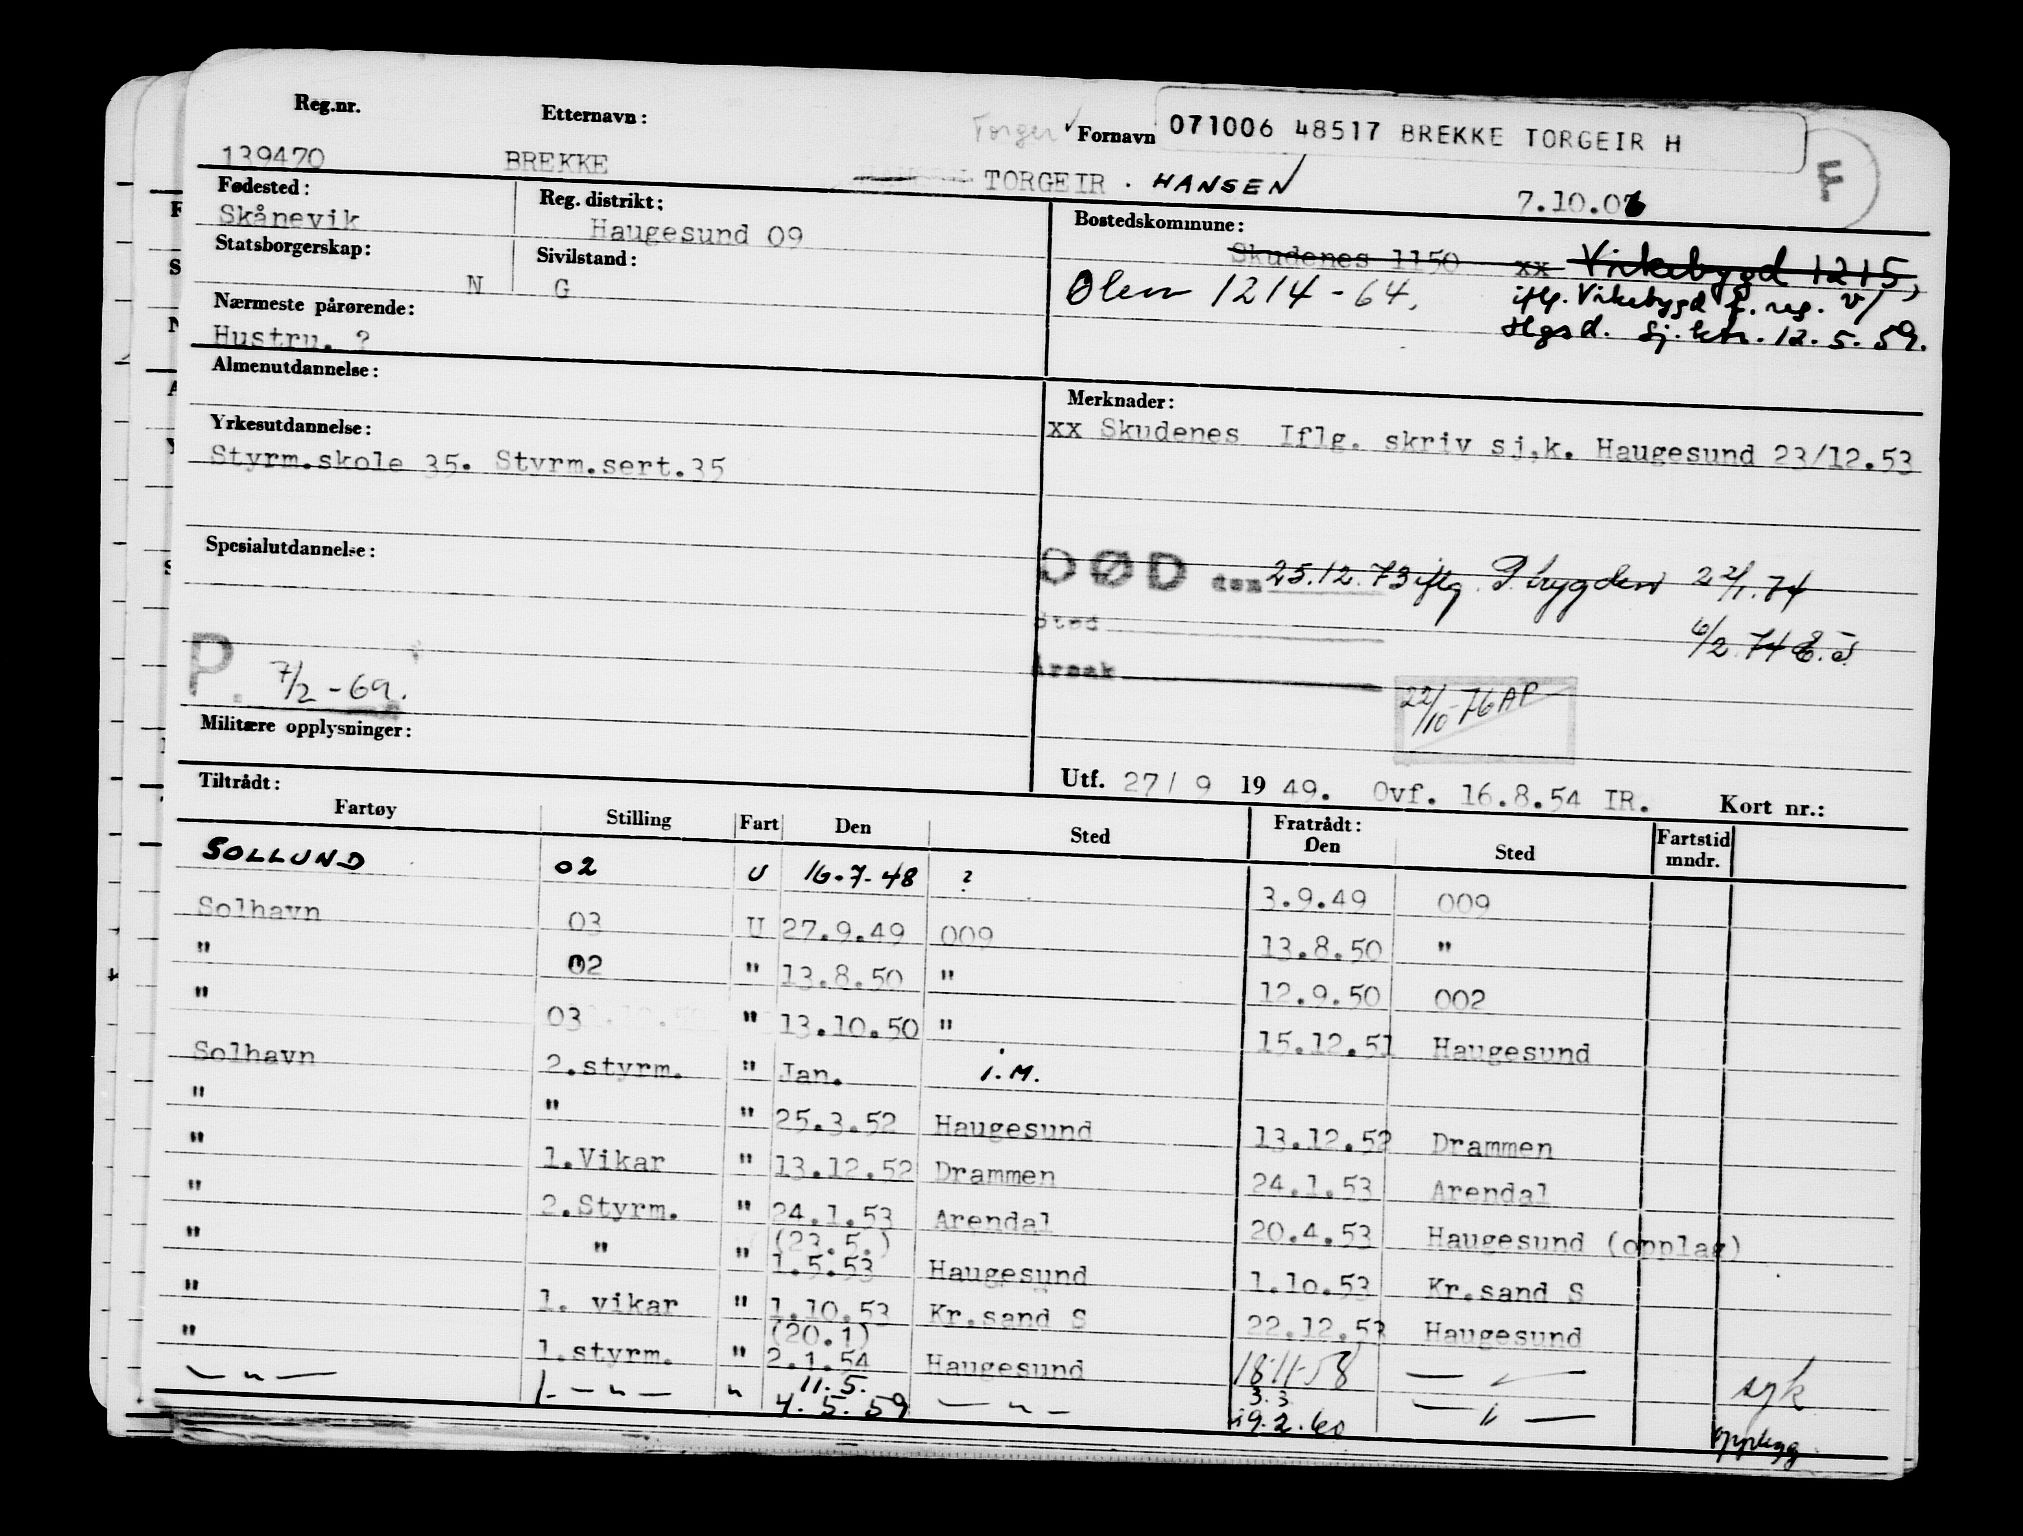 Reg.nr. Etternavn: Torger ✓ Fornavn 071006 48517 BREKKE TORGEIR H F
139470 BREKKE TORGEIR. HANSEN 7.10.06
Fødested: Reg. distrikt: Bostedskommune:
Skånevik Haugesund 09 Skudenes 1150 xx Vikebygd 1215,
Statsborgerskap: Sivilstand: Ølen 1214-64, iflg. Vikebygd f. reg. v/
N G Hgsd. sj. ktr. 12.5.59.
Nærmeste pårørende:
Hustru. ?
Almenutdannelse: Merknader:
xx Skudenes Iflg. skriv sj,k. Haugesund 23/12.53
Yrkesutdannelse:
Styrm.skole 35. Styrm.sert.35
Spesialutdannelse:
DØD den 25.12.73 iflg. P.trygden 22/1.74
Sted 6/2 74
Årsak
P. 7/2-69. 22/10-76 AP
Militære opplysninger:
Utf. 27/ 9 19 49. Ovf. 16.8.54 IR. Kort nr.:
Tiltrådt: Fratrådt: Fartstid
Fartøy Stilling Fart Den Sted Den Sted mndr.
SOLLUND 02 U 16.7-48 ? 3.9.49 009
Solhavn 03 U 27.9.49 009 13.8.50 "
" 02 " 13.8.50 " 12.9.50 002
" 03 " 13.10.50 " 15.12.51 Haugesund
Solhavn 2.styrm. " Jan. I.M.
" " " 25.3.52 Haugesund 13.12.52 Drammen
" 1.Vikar " 13.12.52 Drammen 24.1.53 Arendal
" 2.Styrm. " 24.1.53 Arendal 20.4.53 Haugesund (opplag)
(23.5.)
" " " 1.5.53 Haugesund 1.10.53 Kr.sand S
" 1. vikar " 1.10.53 Kr.sand S 22.12.53 Haugesund
(20.1)
" 1.styrm. " 2.1.54 Haugesund 18-11-58 — " — syk
11.5. 3.3
— " — 1. — " — " 4.5.59 — " — 19.2.60 — " — opplegg